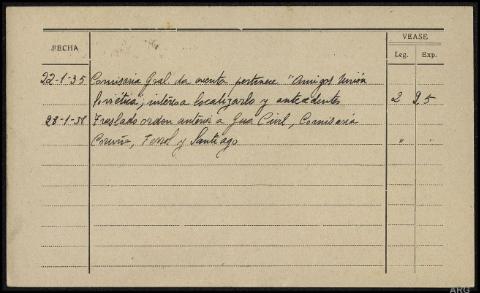 VEASE
FECHA Leg. Exp.
22-1-35 Comisaria Gral. da cuenta pertenece "Amigos Unión
Soviética", interesa localizarlo y antecedentes 2 9.5
28-1-35 Traslado orden anterior a Gua Civil, Comisaria
Coruña, Ferrol y Santiago " "
ARG